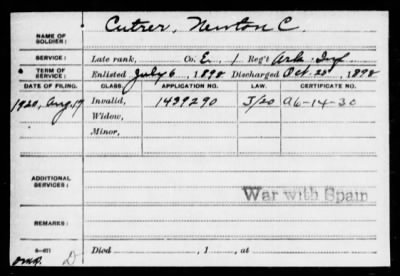 NAME OF SOLDIER: Cutrer, Newton C.
SERVICE: Late rank, Co. E, 1 Reg't Ark. Inf
TERM OF SERVICE: Enlisted July 6, 1898 Discharged Oct. 28, 1898
DATE OF FILING. CLASS. APPLICATION NO. LAW. CERTIFICATE NO.
1920, Aug. 19 Invalid, 1439290 J/20 A6-14-30
Widow,
Minor,
ADDITIONAL SERVICES:
War with Spain
REMARKS:
Died , 1 , at
D